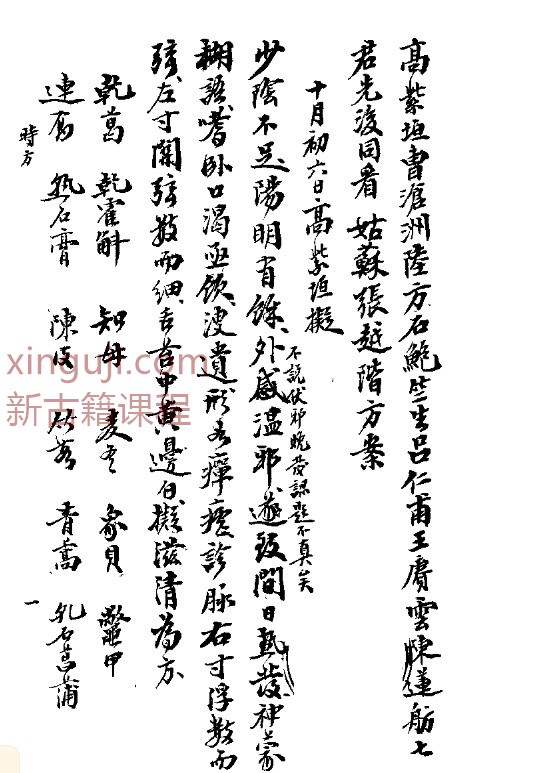 高紫垣曹滄洲陸方石鮑竺生呂仁甫王賡雲陳蓮舫七
君先後同看姑蘇張越階方案
十月初六日高紫垣擬
不說伏邪晚發認題不真矣
少陰不足陽明有餘外感溫邪遂致間日熱發神蒙
糊語嗜卧口渴亟飲溲遺形為癉瘧診脉右寸浮數而
弦左寸關弦數而細舌苔中黃邊白擬滋清為方
乾葛 乾霍斛 知母 麦冬 象貝 鱉甲
連翹 熟石膏 陳皮 竹茹 青蒿 乳石菖蒲
時方
一
xinguji.com
新古籍课程